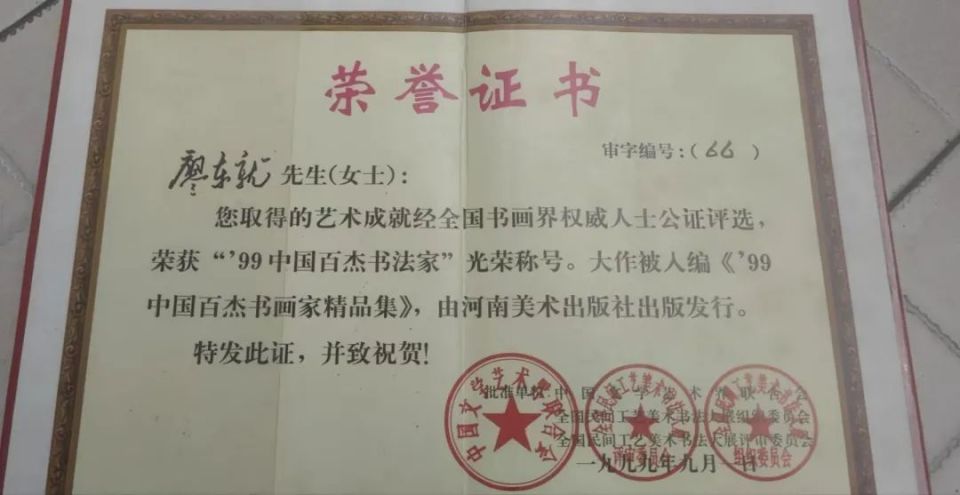 荣誉证书
审字编号:(66)
廖东就 先生(女士):
您取得的艺术成就经全国书画界权威人士公证评选,
荣获“'99中国百杰书法家”光荣称号。大作被入编《'99
中国百杰书画家精品集》,由河南美术出版社出版发行。
特发此证,并致祝贺!
批准单位 中国文学艺术界联合会
全国民间工艺美术书法大展组织委员会
全国民间工艺美术书法大展评审委员会
一九九九年九月一日
中国文学艺术界联合会
评审委员会
组织委员会